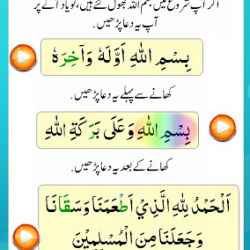 اگر آپ شروع میں بسم اللہ بھول گئے ہیں، تو یاد آنے پر
آپ یہ دعا پڑھیں.
بِسْمِ اللهِ اَوَّلَهٗ وَآخِرَهٗ
کھانے سے پہلے یہ دعا پڑھیں.
بِسْمِ اللهِ وَعَلَى بَرَكَةِ اللهِ
کھانے کے بعد یہ دعا پڑھیں.
اَلْحَمْدُ لِلّٰهِ الَّذِيْ اَطْعَمَنَا وَسَقَانَا
وَجَعَلَنَا مِنَ الْمُسْلِمِيْنَ